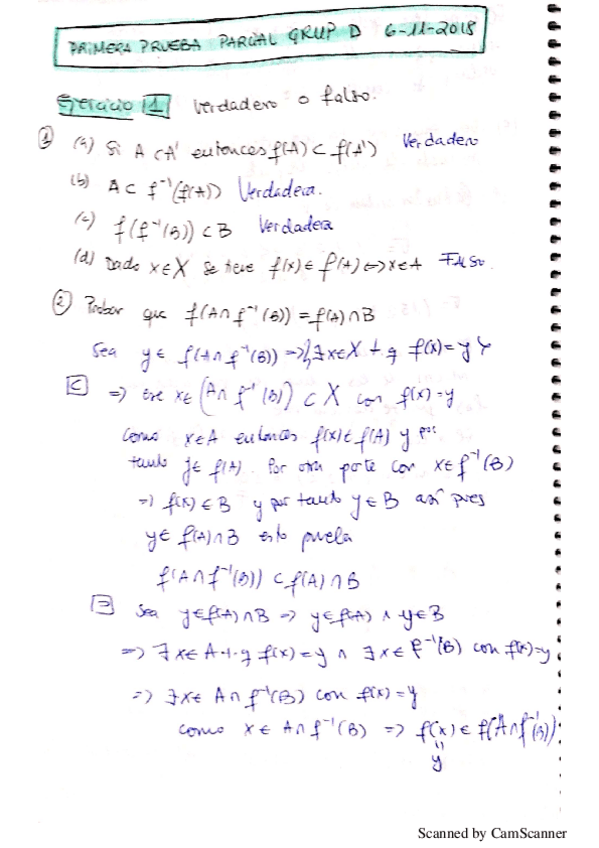 PRIMERA PRUEBA PARCIAL GRUP D 6-11-2018
Ejercicio 1 Verdadero o falso.
① (a) Si A ⊂ A' entonces f(A) ⊂ f(A') Verdadero
(b) A ⊂ f⁻¹(f(A)) Verdadera.
(c) f(f⁻¹(B)) ⊂ B Verdadera
(d) Dado x ∈ X se tiene f(x) ∈ f(A) ⇔ x ∈ A Falso.
② Probar que f(A ∩ f⁻¹(B)) = f(A) ∩ B
Sea y ∈ f(A ∩ f⁻¹(B)) => ∃ x ∈ X t q f(x) = y y
⊂ => ese x ∈ (A ∩ f⁻¹(B)) ⊂ X con f(x) = y
Como x ∈ A entonces f(x) ∈ f(A) y por
tanto y ∈ f(A). Por otra parte con x ∈ f⁻¹(B)
=> f(x) ∈ B y por tanto y ∈ B así pues
y ∈ f(A) ∩ B esto prueba
f(A ∩ f⁻¹(B)) ⊂ f(A) ∩ B
⊃ Sea y ∈ f(A) ∩ B => y ∈ f(A) ∧ y ∈ B
=> ∃ x ∈ A t.q f(x) = y ∧ ∃ x ∈ f⁻¹(B) con f(x) = y
=> ∃ x ∈ A ∩ f⁻¹(B) con f(x) = y
como x ∈ A ∩ f⁻¹(B) => f(x) ∈ f(A ∩ f⁻¹(B))
=
y
Scanned by CamScanner